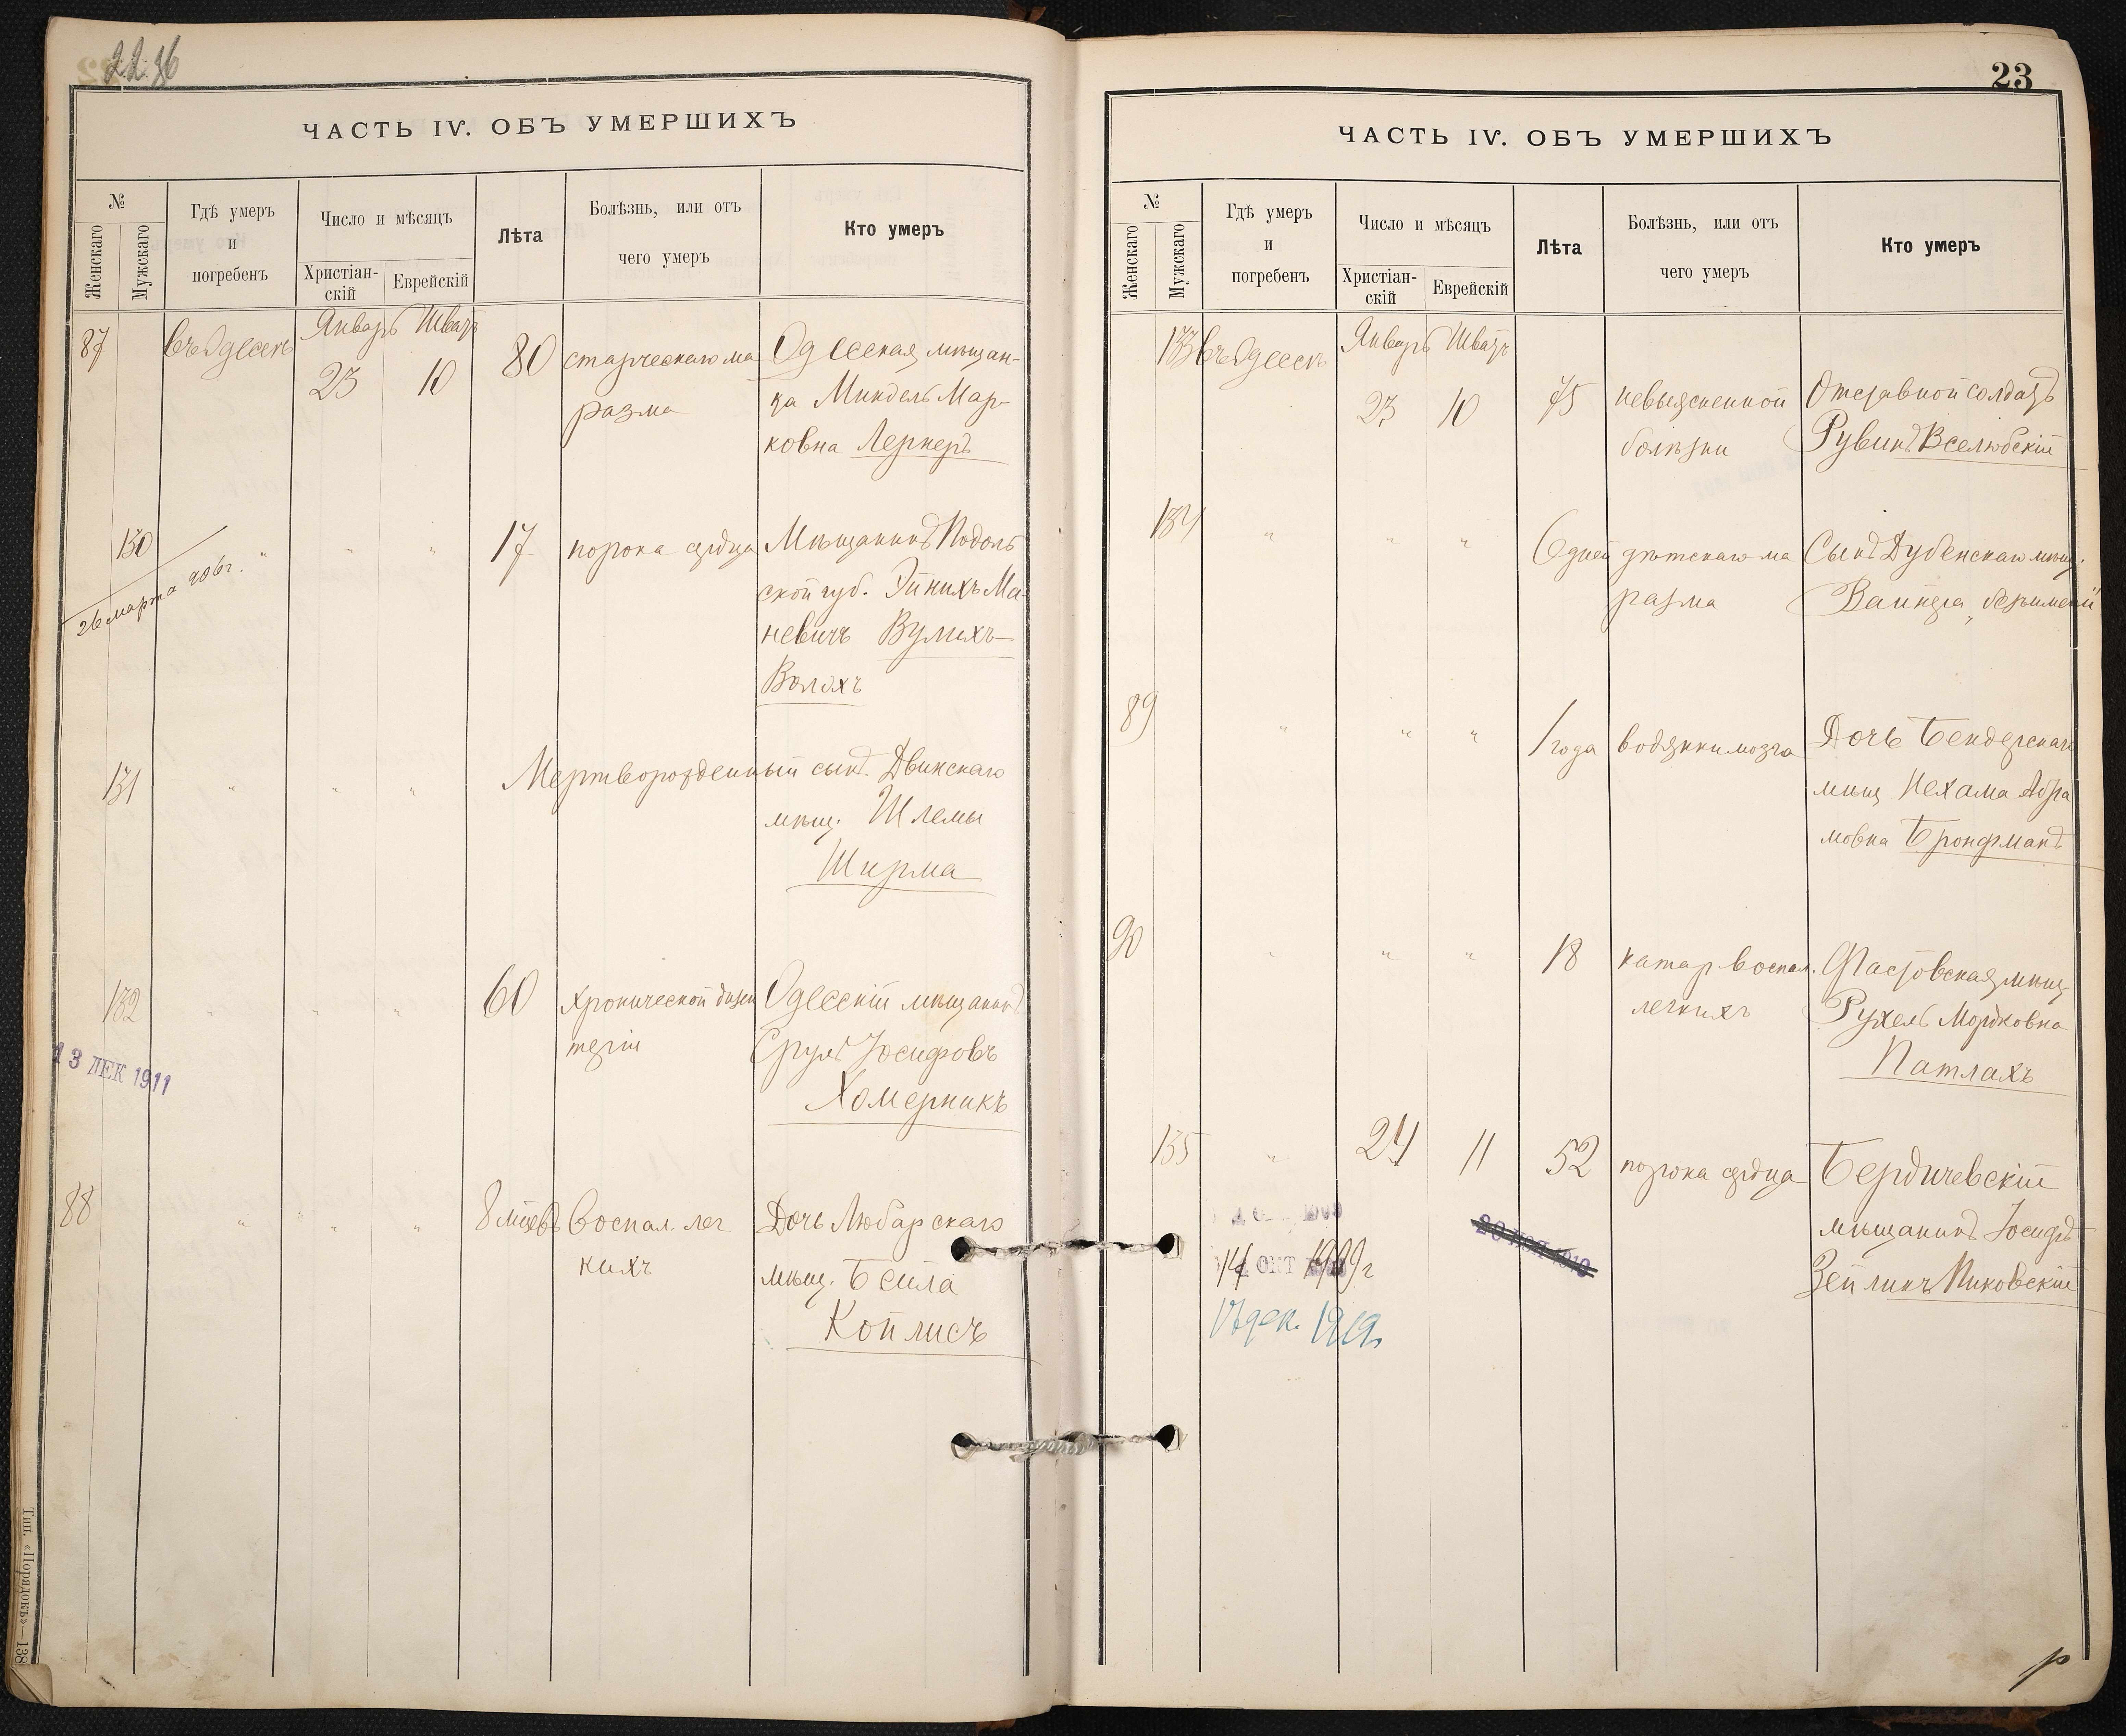 22 об
ЧАСТЬ IV. ОБЪ УМЕРШИХЪ
№
Женскаго
Мужскаго
Гдѣ умеръ
и
погребенъ
Число и мѣсяцъ
Христіан-
скій
Еврейскій
Лѣта
Болѣзнь, или отъ
чего умеръ
Кто умеръ
87
въ Одессѣ
Январь Шватъ
23 10
80
старческаго ма
разма
Одесская мѣщан-
ка Миндель Мар-
ковна Лернеръ
130
26 марта 906 г.
" " "
17
порока сердца
Мѣщанинъ Подоль
ской губ. Эйнихъ Ма-
невичъ Вулихъ
Волохъ
131
" " "
Мертворожденный сынъ Двинскаго
мѣщ. Шлемы
Ширма
132
" " "
60
хронической дизен
теріи
Одесскій мѣщанинъ
Сруль Іосифовъ
Хомерникъ
13 ДЕК 1911
88
" " "
8 мѣсяцевъ
воспал. лег
кихъ
Дочь Любарскаго
мѣщ. Бейла
Койлисъ
Тип. «Порядокъ»—138
23
ЧАСТЬ IV. ОБЪ УМЕРШИХЪ
№
Женскаго
Мужскаго
Гдѣ умеръ
и
погребенъ
Число и мѣсяцъ
Христіан-
скій
Еврейскій
Лѣта
Болѣзнь, или отъ
чего умеръ
Кто умеръ
133
въ Одессѣ
Январь Шватъ
23 10
75
невыясненной
болѣзни
Отставной солдатъ
Рувинъ Вселюбскій
134
" " "
6 дней
дѣтскаго ма
разма
Сынъ Дубенскаго мѣщ.
Вайнера „безъимени"
89
" " "
1 года
водянки мозга
Дочь Бендерскаго
мѣщ Нехама Абра
мовна Бронфманъ
90
" " "
18
катар воспал.
легкихъ
Фастовская мѣщ
Рухель Мордковна
Патлахъ
135
"
24 11
52
порока сердца
Бердичевскій
мѣщанинъ Іосифъ
Зейликъ Пиковскій
14 ОКТ 1909 г
20 НОЯ 1910
17 дек. 1919